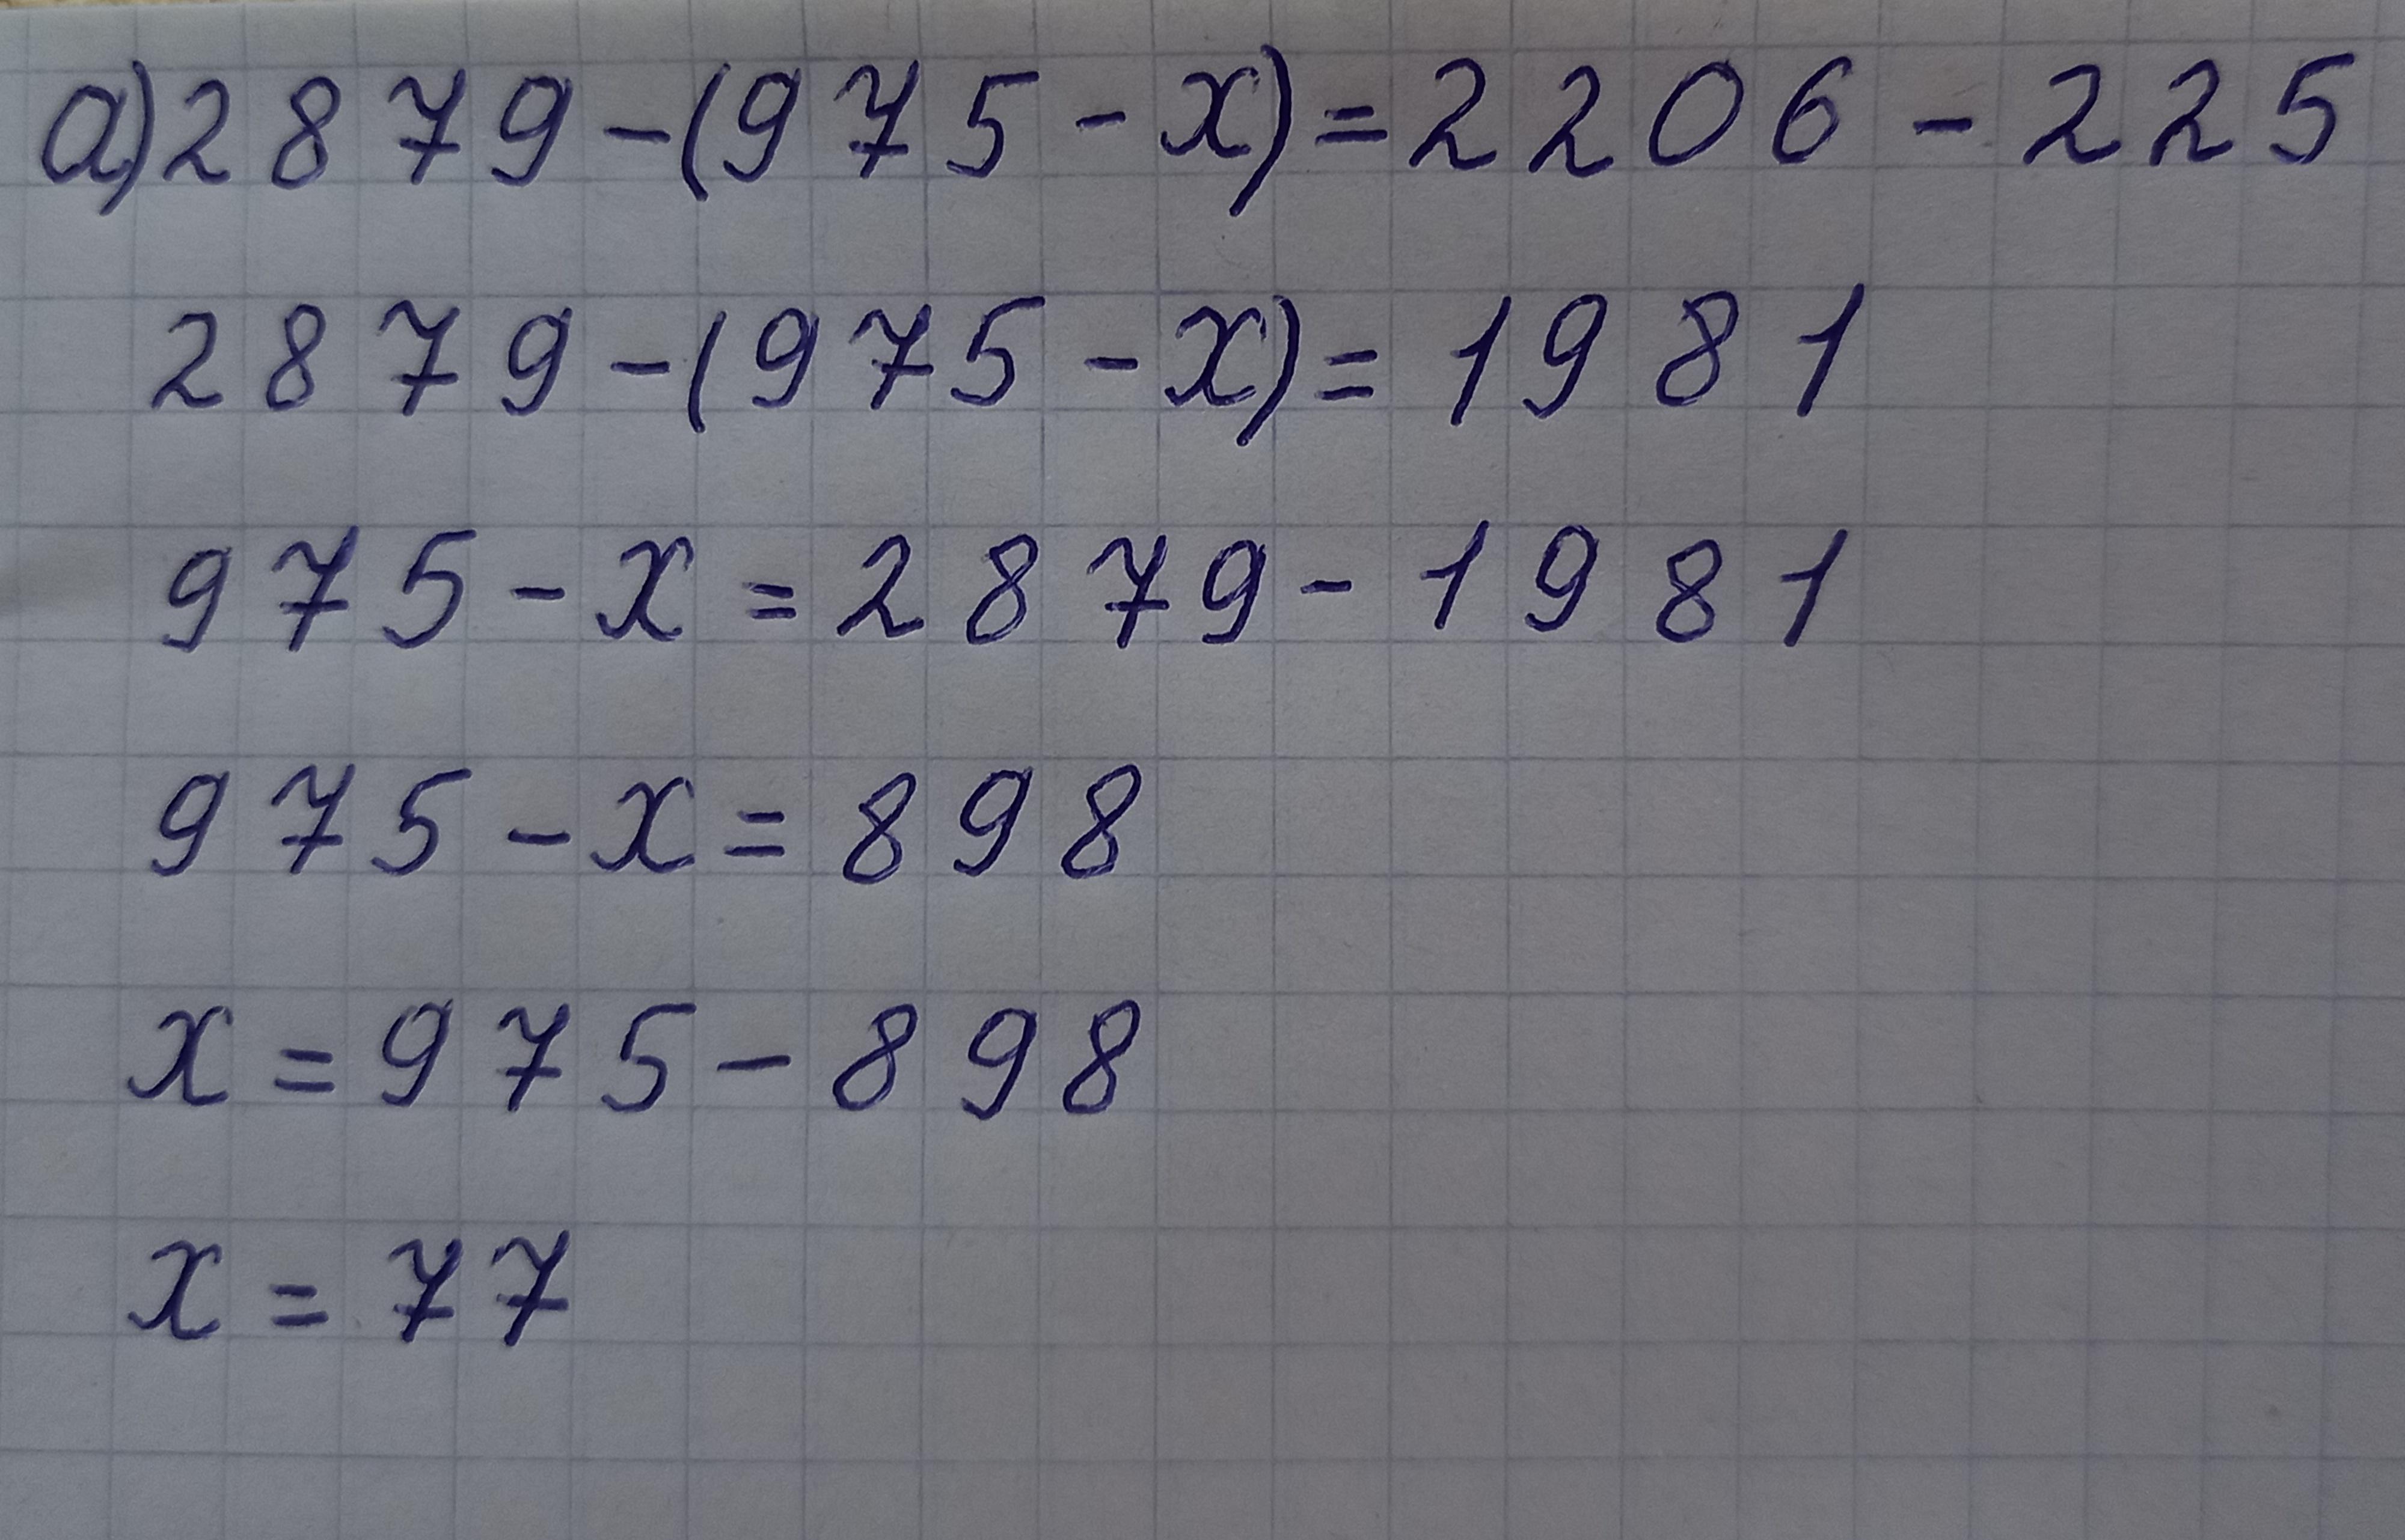 а) 2879 - (975 - x) = 2206 - 225
2879 - (975 - x) = 1981
975 - x = 2879 - 1981
975 - x = 898
x = 975 - 898
x = 77